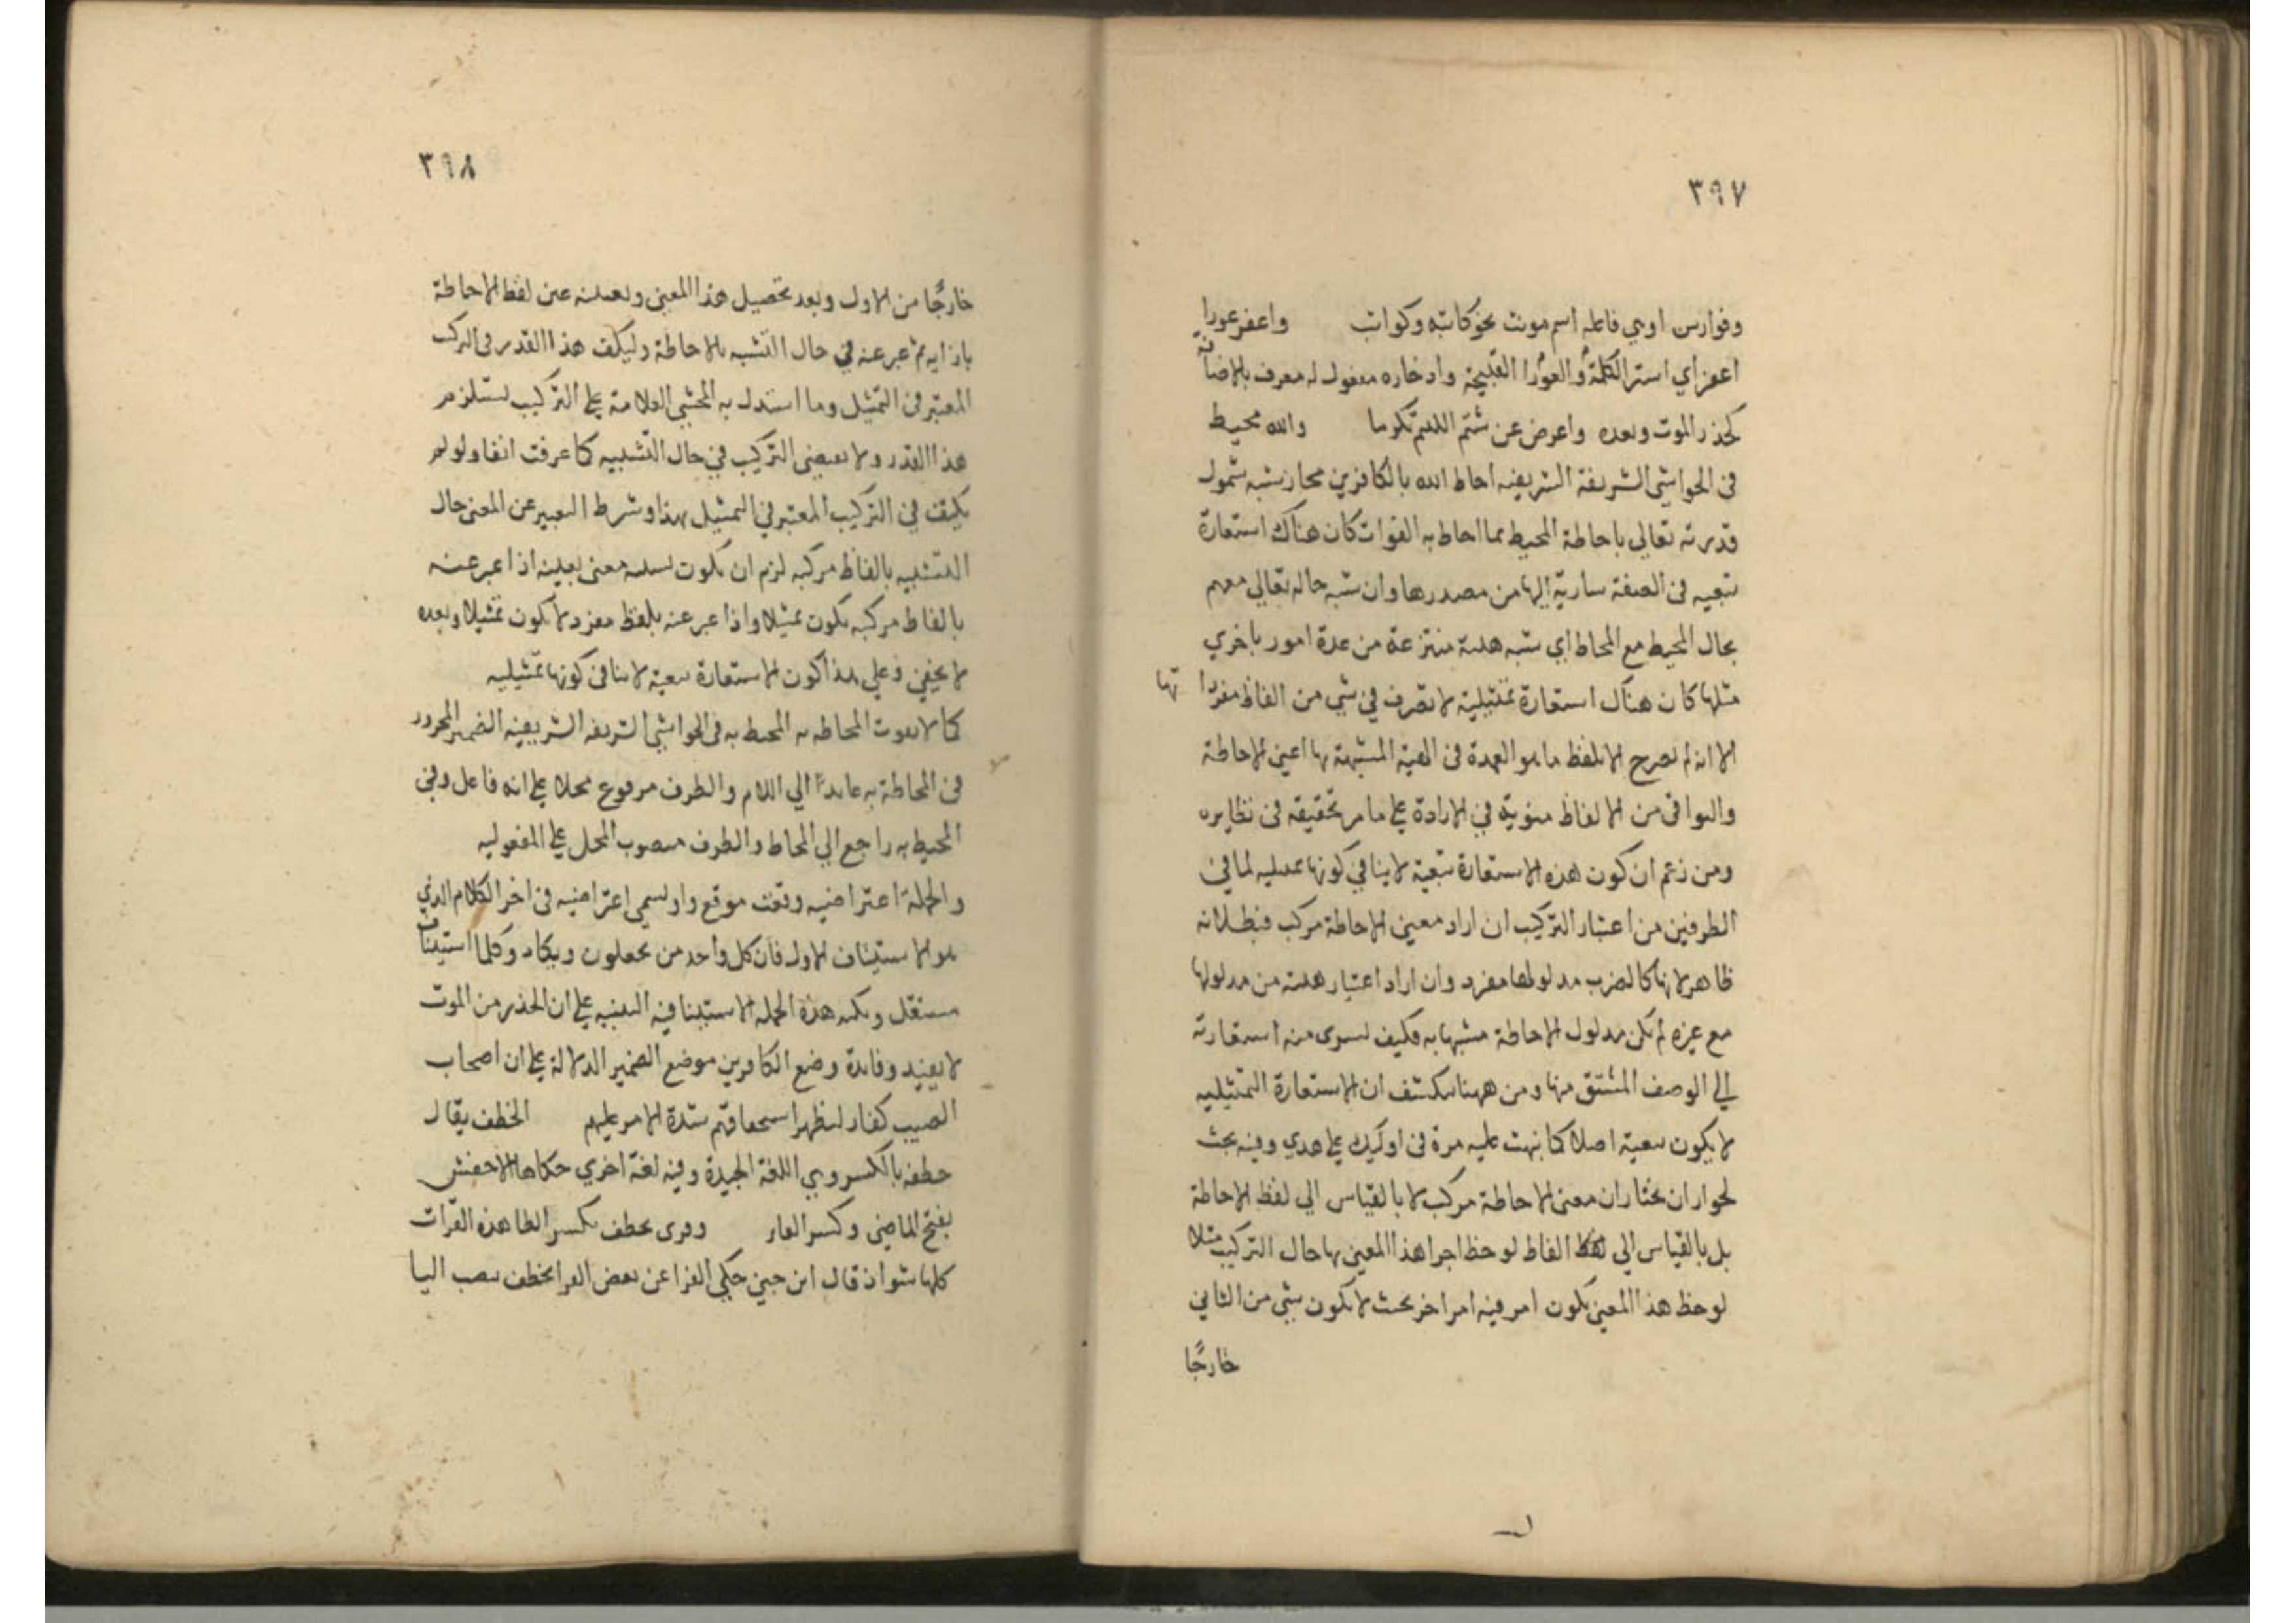 ٣٩٧
وفوارس او هي فاعلة اسم مونث نحو كاتبه وكواتب واغفر عوراء
اغفر اي استر الكلمة والعورا القبيحة وادخاره مفعول له معرف بالاضافة
كحذر الموت وبعده واعرض عن شتم اللئيم تكرما والله محيط
فى الحواشي الشريفة الشريفيه احاط الله بالكافرين مجاز شبه شمول
قدرته تعالى باحاطة المحيط بما احاط به الفوات كان هناك استعارة
تبعيه فى الصفة سارية اليها من مصدرها وان شبه حاله تعالي معهم
بحال المحيط مع المحاط اي شبه هيئة منتزعة من عدة امور باخري
مثلها كان هناك استعارة تمثيلية لا تصرف في شي من الفاظ مفرداتها
الا انه لم يصرح الا بلفظ ما هو العمدة فى الهيئة المشبهة بها اعني الاحاطة
والبواقى من الالفاظ منوية في الارادة على ما مر تحقيقه فى نظايره
ومن زعم ان كون هذه الاستعارة تبعية لا ينافي كونها تمثيليه لما في
الطرفين من اعتبار التركيب ان اراد معنى الاحاطة مركب فبطلانه
ظاهر لانها كالضرب مدلولها مفرد وان اراد اعتبار هيئة من مدلولها
مع غيره لم يكن مدلول الاحاطة مشبها به فكيف يسرى منه استعارته
الي الوصف المشتق منها ومن ههنا ينكشف ان الاستعارة التمثيليه
لا يكون تبعية اصلا كما نبهت عليه مرة فى اوليك على هدي وفيه بحث
لجواز ان يختار ان معنى الاحاطة مركب لا بالقياس الي لفظ الاحاطة
بل بالقياس الي لفظ الفاظ لوحظ اجزا هذا المعنى بها حال التركيب مثلا
لوحظ هذا المعنى بكون امر فيه امر اخر بحيث لا يكون شي من الثاني
خارجًا
٣٩٨
خارجًا من الاول وبعد تحصيل هذا المعنى وتعينه عين لفظ الاحاطة
بازايه ثم عبر عنه في حال التشبه بالاحاطة وليكف هذا القدر فى التركب
المعتبر فى التمثيل وما استدل به المحشي العلامة على التركيب يستلزم
هذا القدر ولا يقتضى التركيب في حال التشبيه كما عرفت انفا ولو لم
يكيف في التركيب المعتبر في التمثيل بهذا وشرط التعبير عن المعنى حال
التشبيه بالفاظ مركبه لزم ان يكون تشبيه معنى بعينه اذا عبر عنه
بالفاظ مركبه يكون تمثيلا واذا عبر عنه بلفظ مفرد لا يكون تمثيلا وبعده
لا يخفي فعلي هذا كون الاستعارة تبعية لا ينافى كونها تمثيليه
كما لا يفوت المحاط به المحيط به فى الحواشي الشريفه الشريفيه الضمير المجرور
فى المحاطة به عايدًا الي اللام والظرف مرفوع محلا على انه فاعل وفي
المحيط به راجع الي المحاط والظرف منصوب المحل على المفعوليه
والجملة اعتراضيه وقعت موقع واو تسمي اعتراضيه فى اخر الكلام الذي
هو الاستيناف الاول فان كل واحد من يجعلون ويكاد وكلما استيناف
مستقل ونكته هذه الجملة الاستينافيه التنبيه على ان الحذر من الموت
لا يفيد وفايدة وضع الكافرين موضع الضمير الدلالة على ان اصحاب
الصيب كفار ليظهر استحقاقهم شدة الامر عليهم الخطف يقال
خطفه بالكسر وهي اللغة الجيدة وفيه لغة اخري حكاها الاخفش
بفتح الماضى وكسر الغابر وقرى يخطف بكسر الطا هذه القرات
كلها شواذ قال ابن جني حكي الفرا عن بعض القرا يخطف بنصب اليا